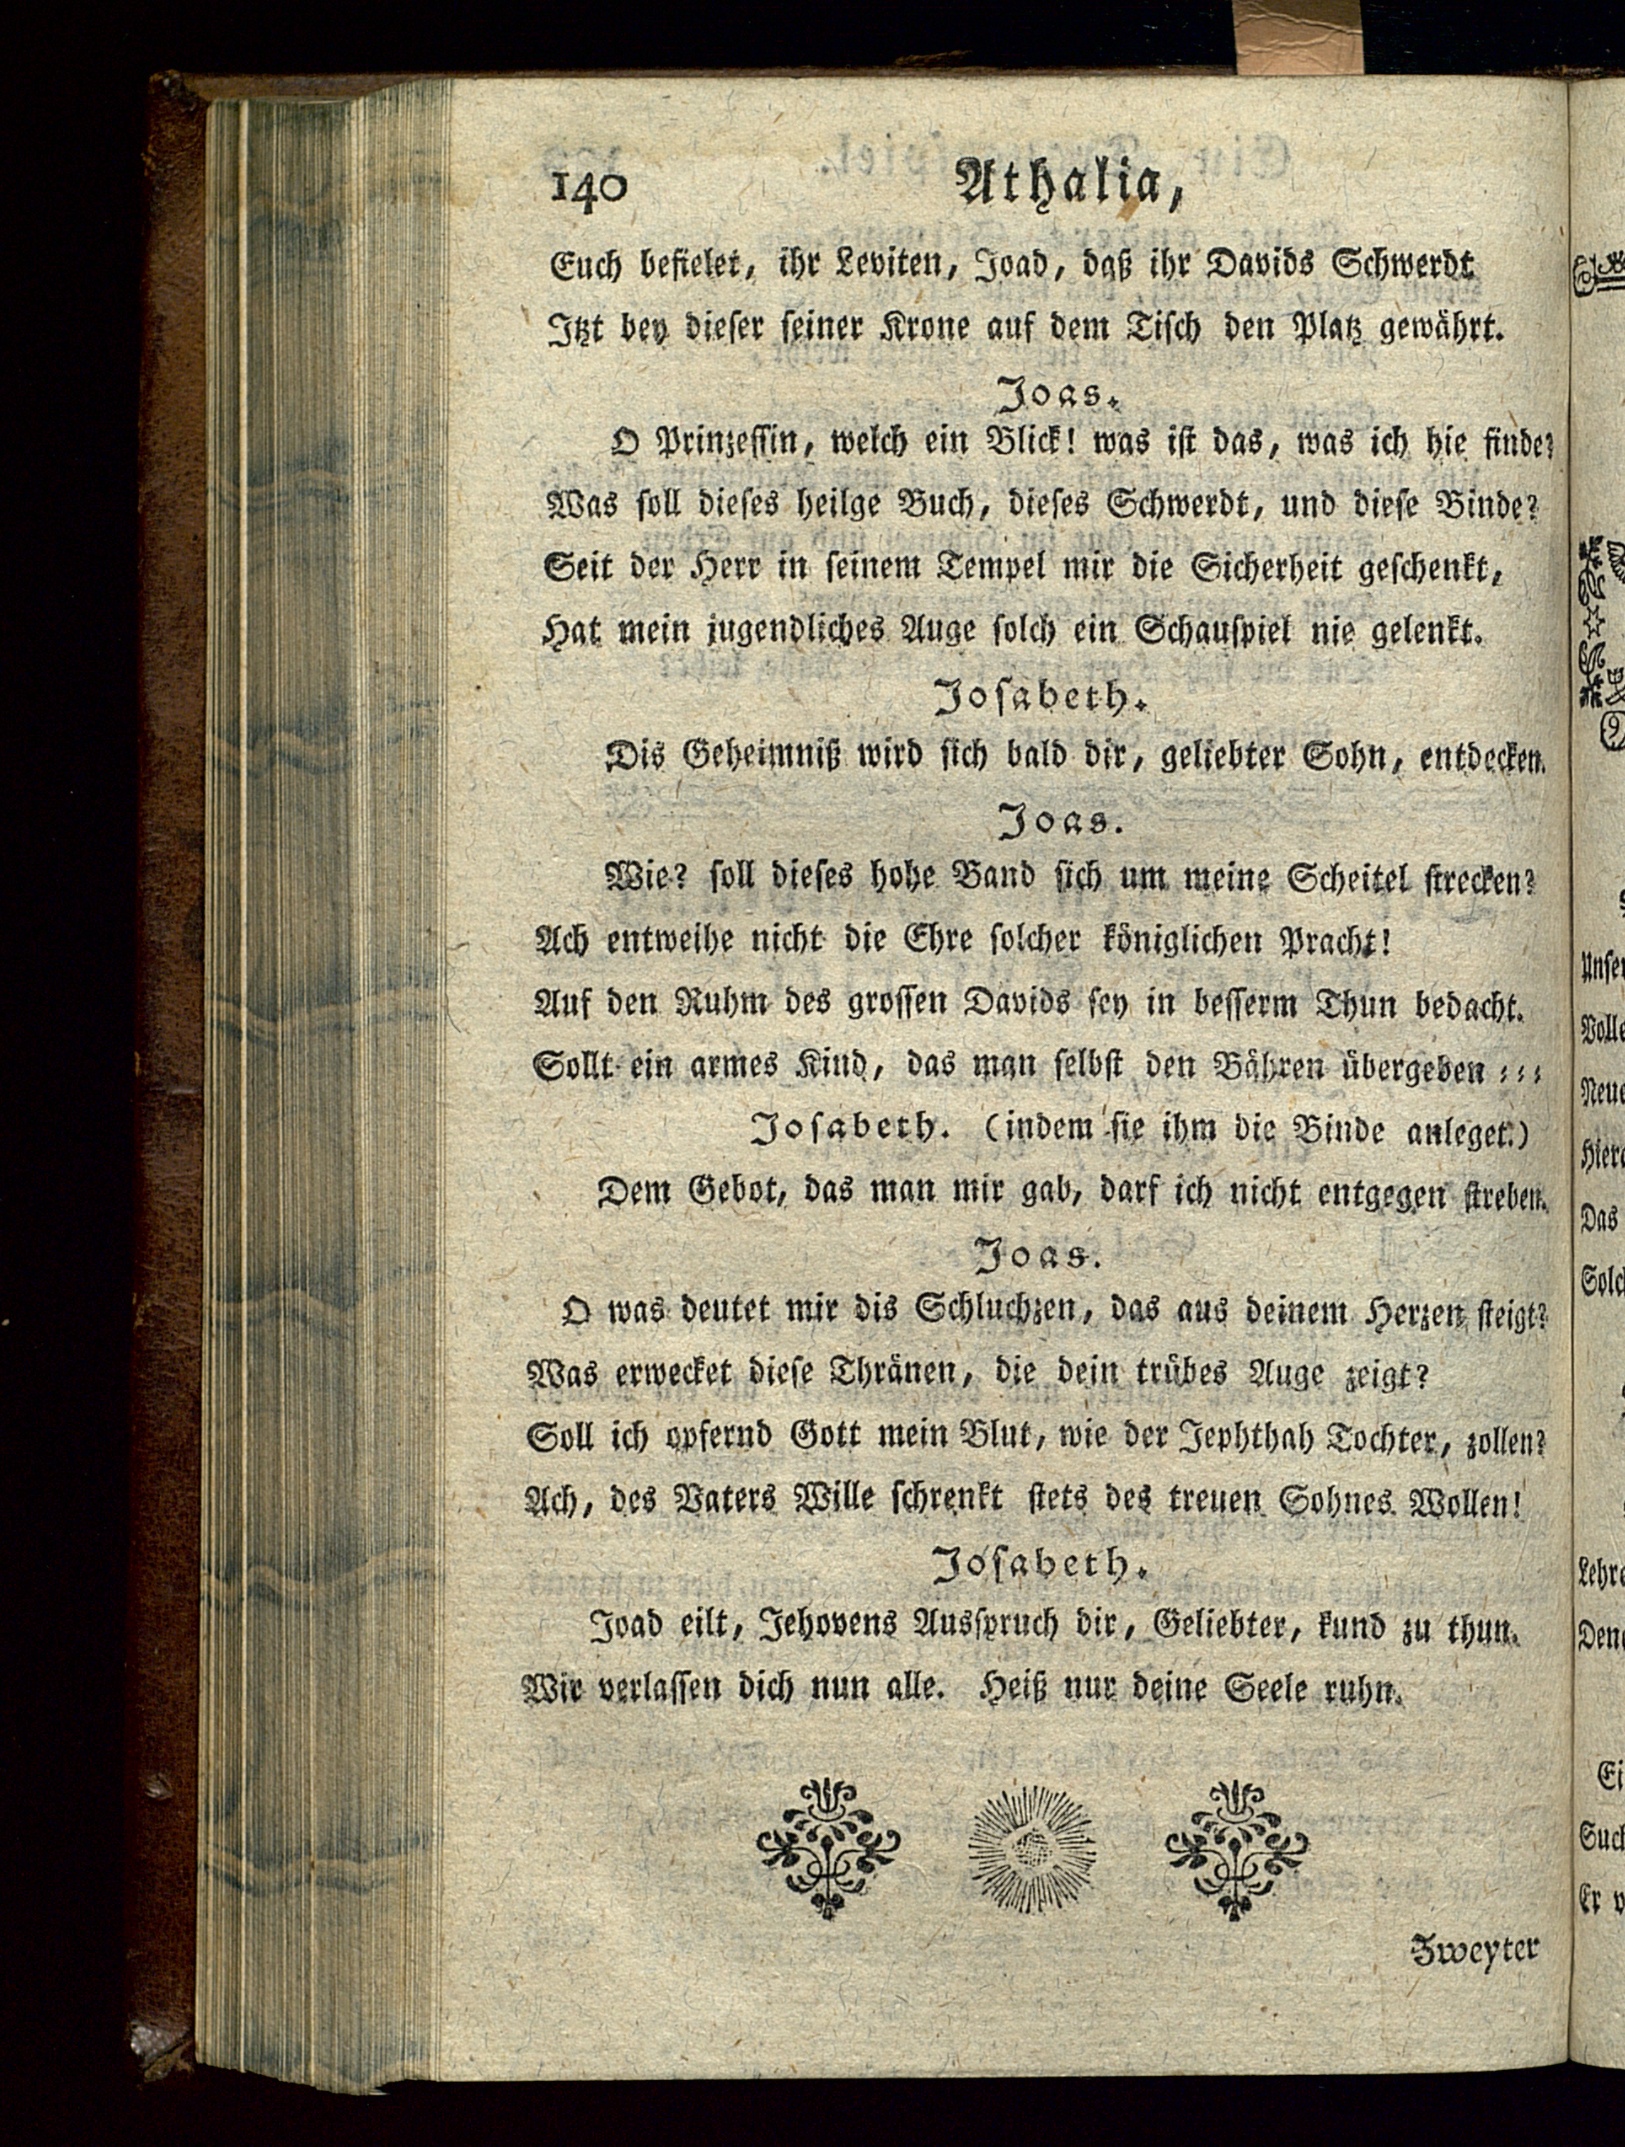 140 Athalia,
Euch befielet, ihr Leviten, Joad, daß ihr Davids Schwerdt
Jtzt bey dieser seiner Krone auf dem Tisch den Platz gewährt.
Joas.
O Prinzessin, welch ein Blick! was ist das, was ich hie finde?
Was soll dieses heilge Buch, dieses Schwerdt, und diese Binde?
Seit der Herr in seinem Tempel mir die Sicherheit geschenkt,
Hat mein jugendliches Auge solch ein Schauspiel nie gelenkt.
Josabeth.
Dis Geheimniß wird sich bald dir, geliebter Sohn, entdecken.
Joas.
Wie? soll dieses hohe Band sich um meine Scheitel strecken?
Ach entweihe nicht die Ehre solcher königlichen Pracht!
Auf den Ruhm des grossen Davids sey in besserm Thun bedacht.
Sollt ein armes Kind, das man selbst den Bähren übergeben ⸗⸗⸗
Josabeth. (indem sie ihm die Binde anleget.)
Dem Gebot, das man mir gab, darf ich nicht entgegen streben.
Joas.
O was deutet mir dis Schluchzen, das aus deinem Herzen steigt?
Was erwecket diese Thränen, die dein trübes Auge zeigt?
Soll ich opfernd Gott mein Blut, wie der Jephthah Tochter, zollen?
Ach, des Vaters Wille schrenkt stets des treuen Sohnes Wollen!
Josabeth.
Joad eilt, Jehovens Ausspruch dir, Geliebter, kund zu thun.
Wir verlassen dich nun alle. Heiß nur deine Seele ruhn.
Zweyter